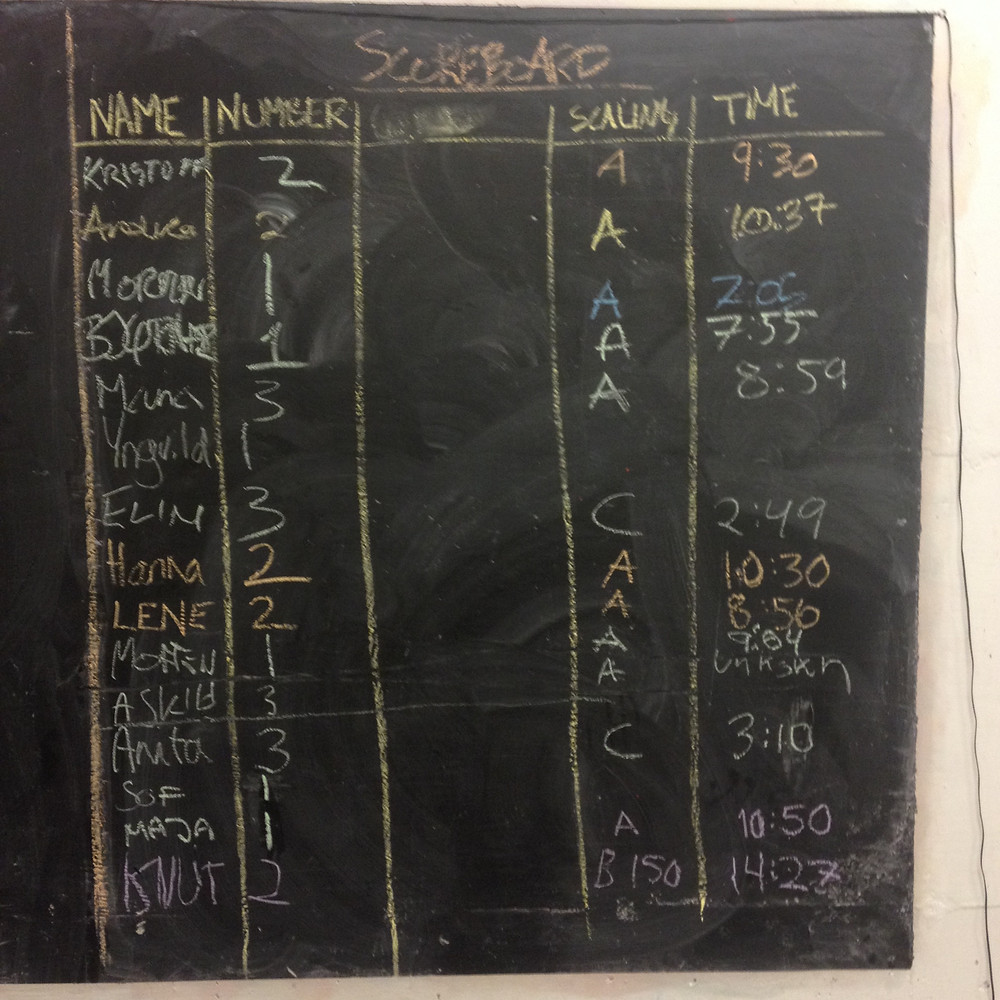 SCOREBOARD
NAME NUMBER SCALING TIME
KRISTOFF 2 A 9:30
Andrea 2 A 10:37
1 A
1 A 7:55
3 A 8:59
Yngvild 1
ELIN 3 C 2:49
Hanna 2 A 10:30
LENE 2 A 8:56
MORTEN 1 A 9:04
ASKILD 3 A
Anita 3 C 3:10
SOF 1
MAJA 1 A 10:50
KNUT 2 B 150 14:27